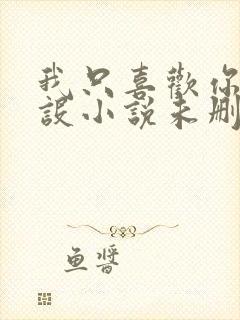 我只喜歡你
設小說未刪
鱼醬